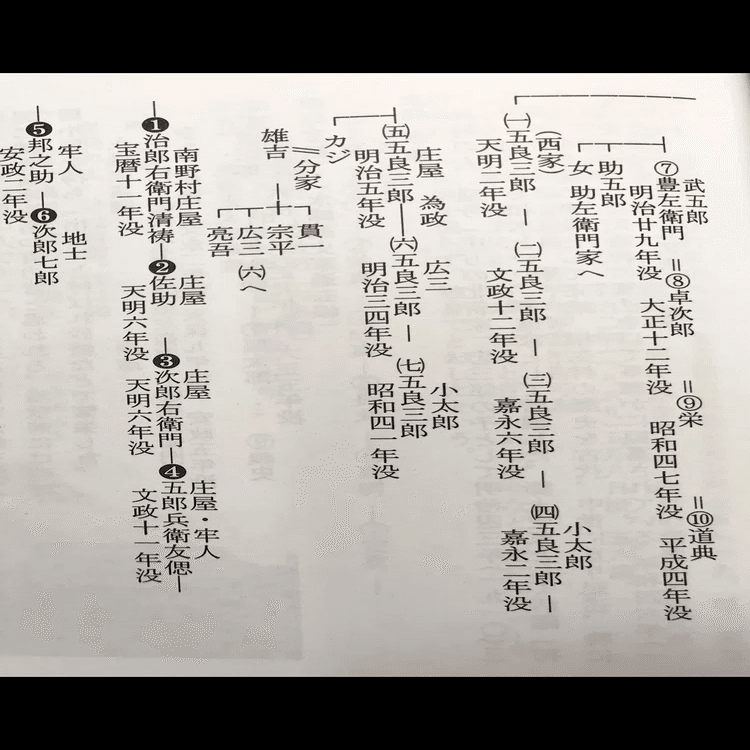 武五郎
⑦豊左衛門=⑧卓次郎=⑨栄=⑩道典
明治廿九年没 大正十二年没 昭和四七年没 平成四年没
助五郎
女 助左衛門家へ
(西家)
小太郎
㈠五良三郎―㈡五良三郎―㈢五良三郎―㈣五良三郎―
天明二年没 文政十二年没 嘉永六年没 嘉永二年没
庄屋 為政 広三 小太郎
㈤五良三郎―㈥五良三郎―㈦五良三郎
明治五年没 明治三四年没 昭和四一年没
カジ
∥分家 貫一
雄吉―宗平
広三 ㈥へ
亮吾
南野村庄屋 庄屋 庄屋 庄屋・牢人
❶治郎右衛門清祷―❷佐助―❸次郎右衛門―❹五郎兵衛友偲―
宝暦十一年没 天明六年没 天明六年没 文政十一年没
牢人 地士
❺邦之助―❻次郎七郎
安政二年没